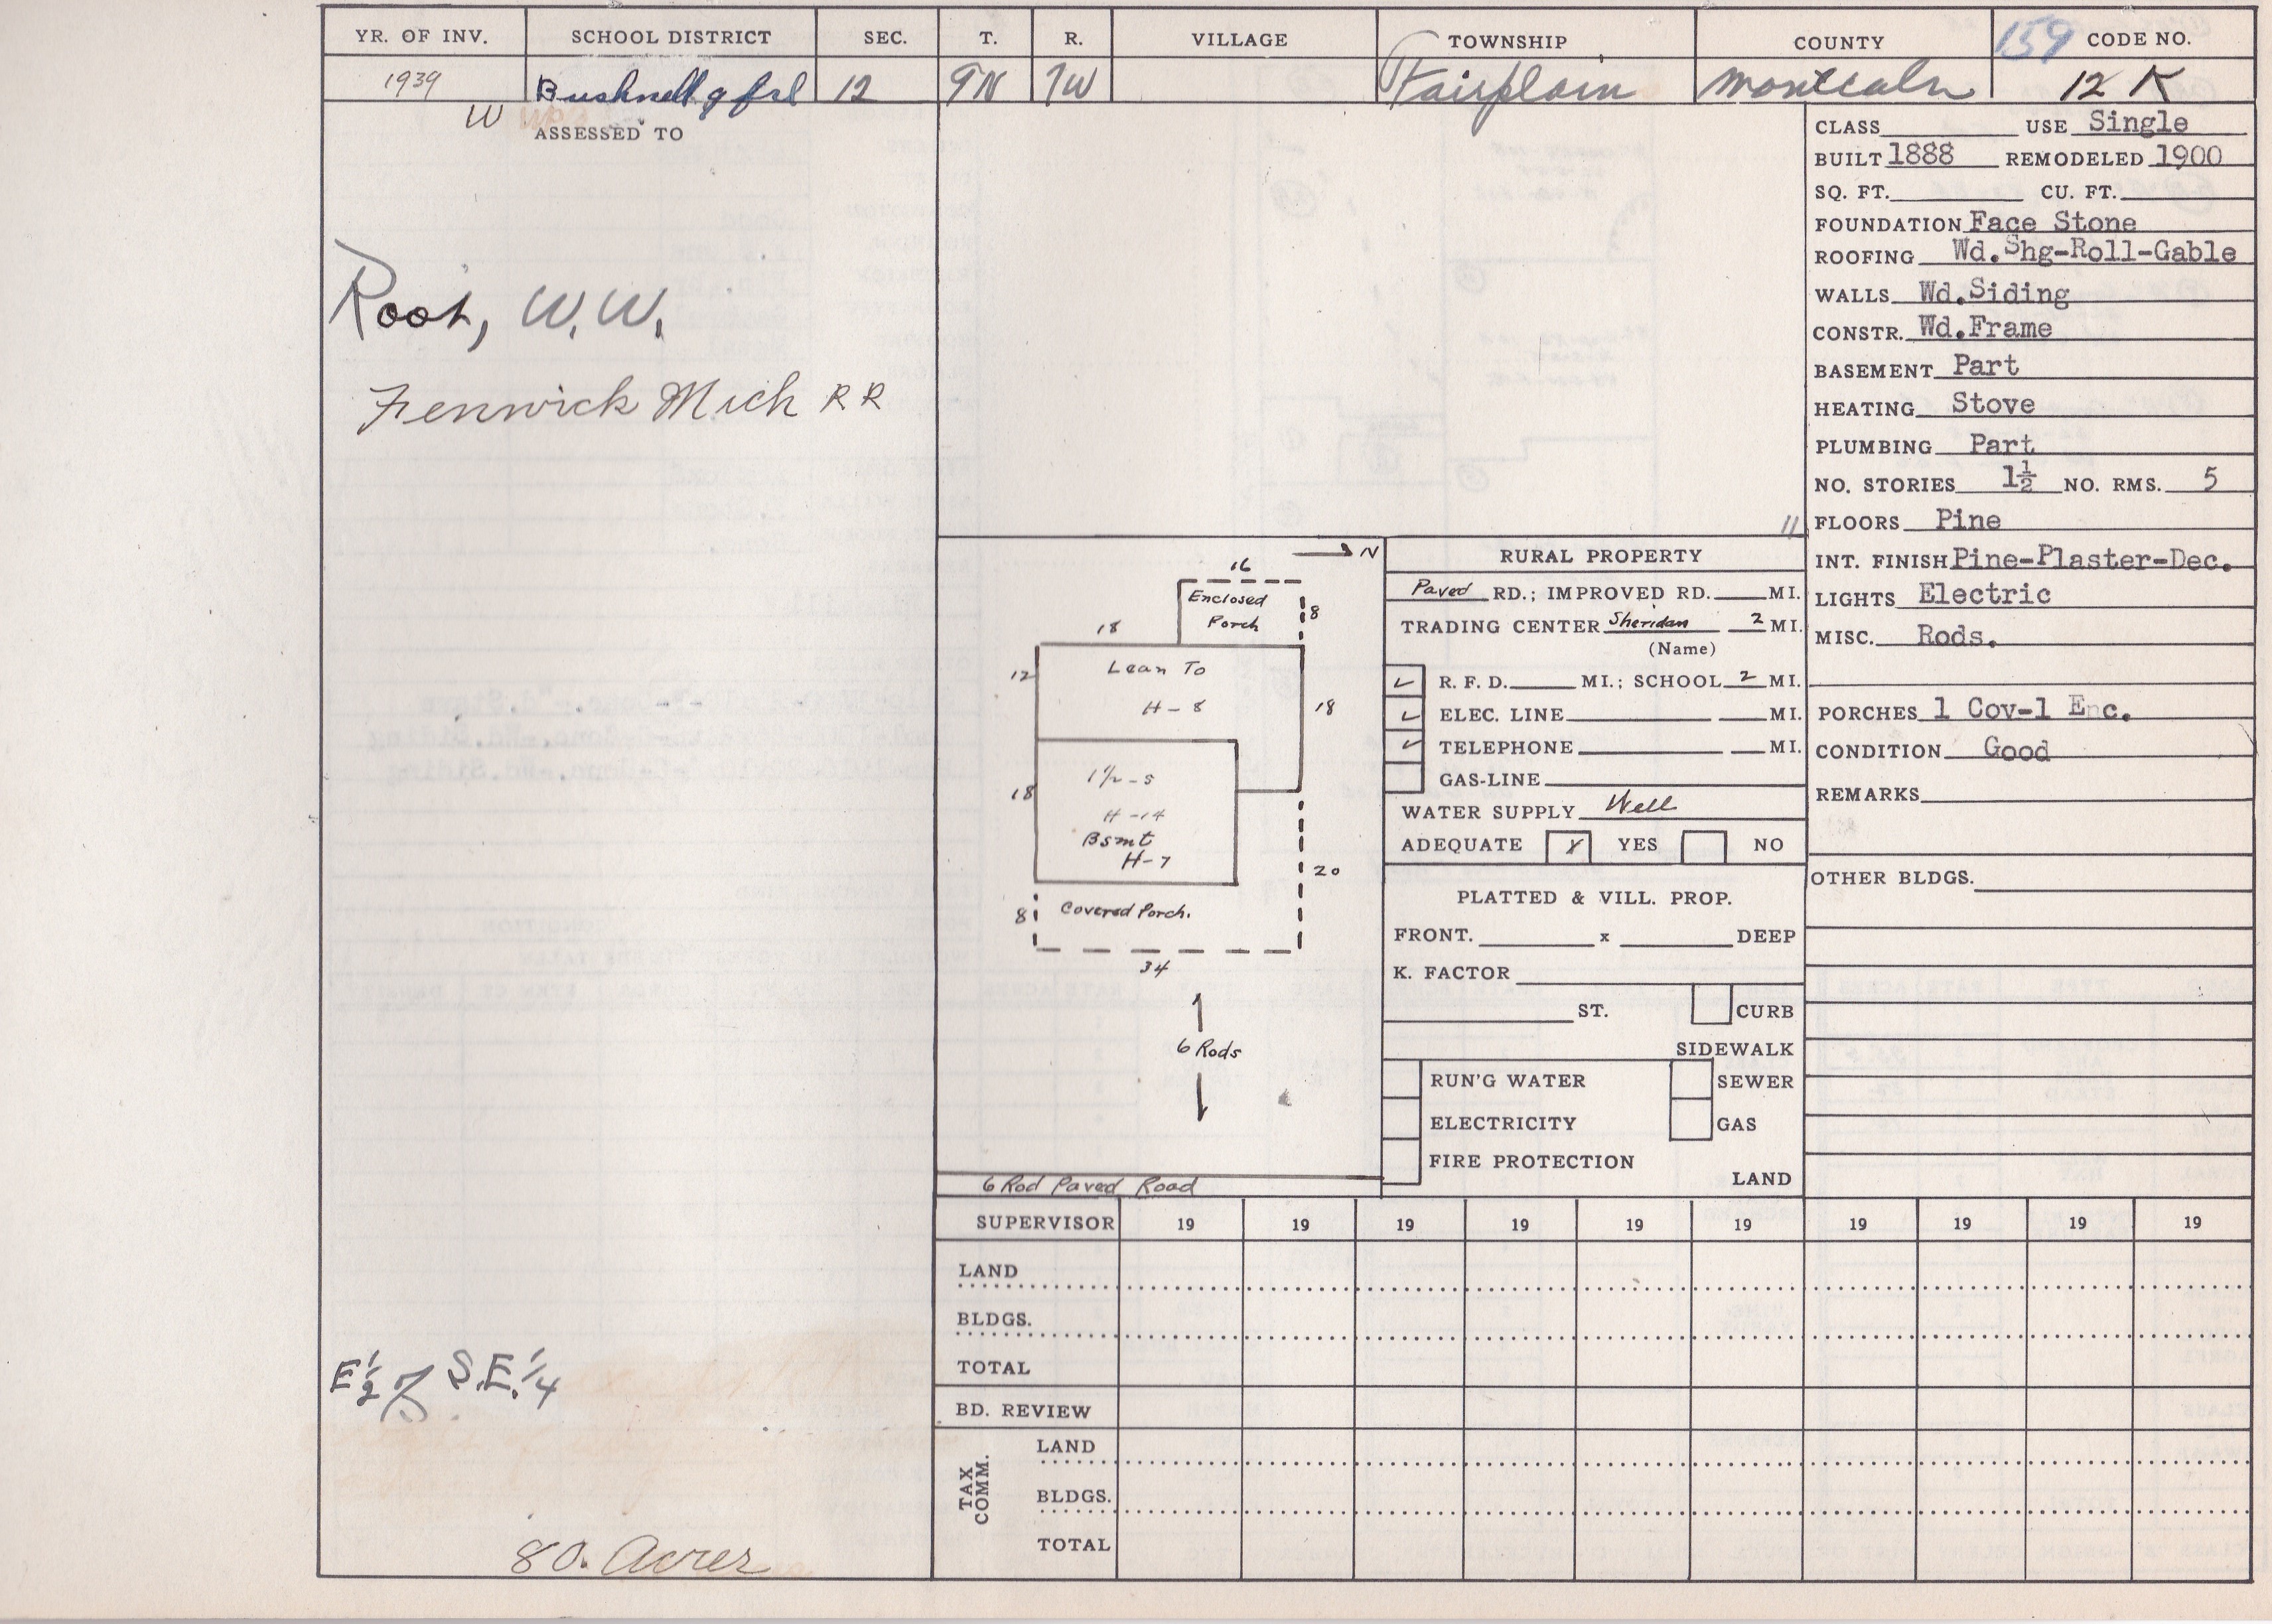 YR. OF INV. SCHOOL DISTRICT SEC. T. R. VILLAGE TOWNSHIP COUNTY 159 CODE NO.
1939 Bushnell 9 frl 12 9N 7W Fairplain Montcalm 12 K
W
ASSESSED TO
Root, W.W.
Fenwick Mich RR
E 1/2 of S.E. 1/4
80. Acres
N
16
Enclosed
Porch
8
18
12
Lean To
H-8
18
1 1/2-S
H-14
Bsmt
H-7
18
20
8
Covered Porch.
34
6 Rods
6 Rod Paved Road
11
RURAL PROPERTY
Paved RD.; IMPROVED RD. MI.
TRADING CENTER Sheridan 2 MI.
(Name)
✓ R. F. D. MI.; SCHOOL 2 MI.
✓ ELEC. LINE MI.
✓ TELEPHONE MI.
GAS-LINE
WATER SUPPLY Well
ADEQUATE X YES NO
PLATTED & VILL. PROP.
FRONT. x DEEP
K. FACTOR
ST. CURB
SIDEWALK
RUN'G WATER SEWER
ELECTRICITY GAS
FIRE PROTECTION
LAND
CLASS USE Single
BUILT 1888 REMODELED 1900
SQ. FT. CU. FT.
FOUNDATION Face Stone
ROOFING Wd.Shg-Roll-Gable
WALLS Wd.Siding
CONSTR. Wd.Frame
BASEMENT Part
HEATING Stove
PLUMBING Part
NO. STORIES 1½ NO. RMS. 5
FLOORS Pine
INT. FINISH Pine-Plaster-Dec.
LIGHTS Electric
MISC. Rods.
PORCHES 1 Cov-1 Enc.
CONDITION Good
REMARKS
OTHER BLDGS.
SUPERVISOR 19 19 19 19 19 19 19 19 19 19
LAND
BLDGS.
TOTAL
BD. REVIEW
TAX COMM.
LAND
BLDGS.
TOTAL